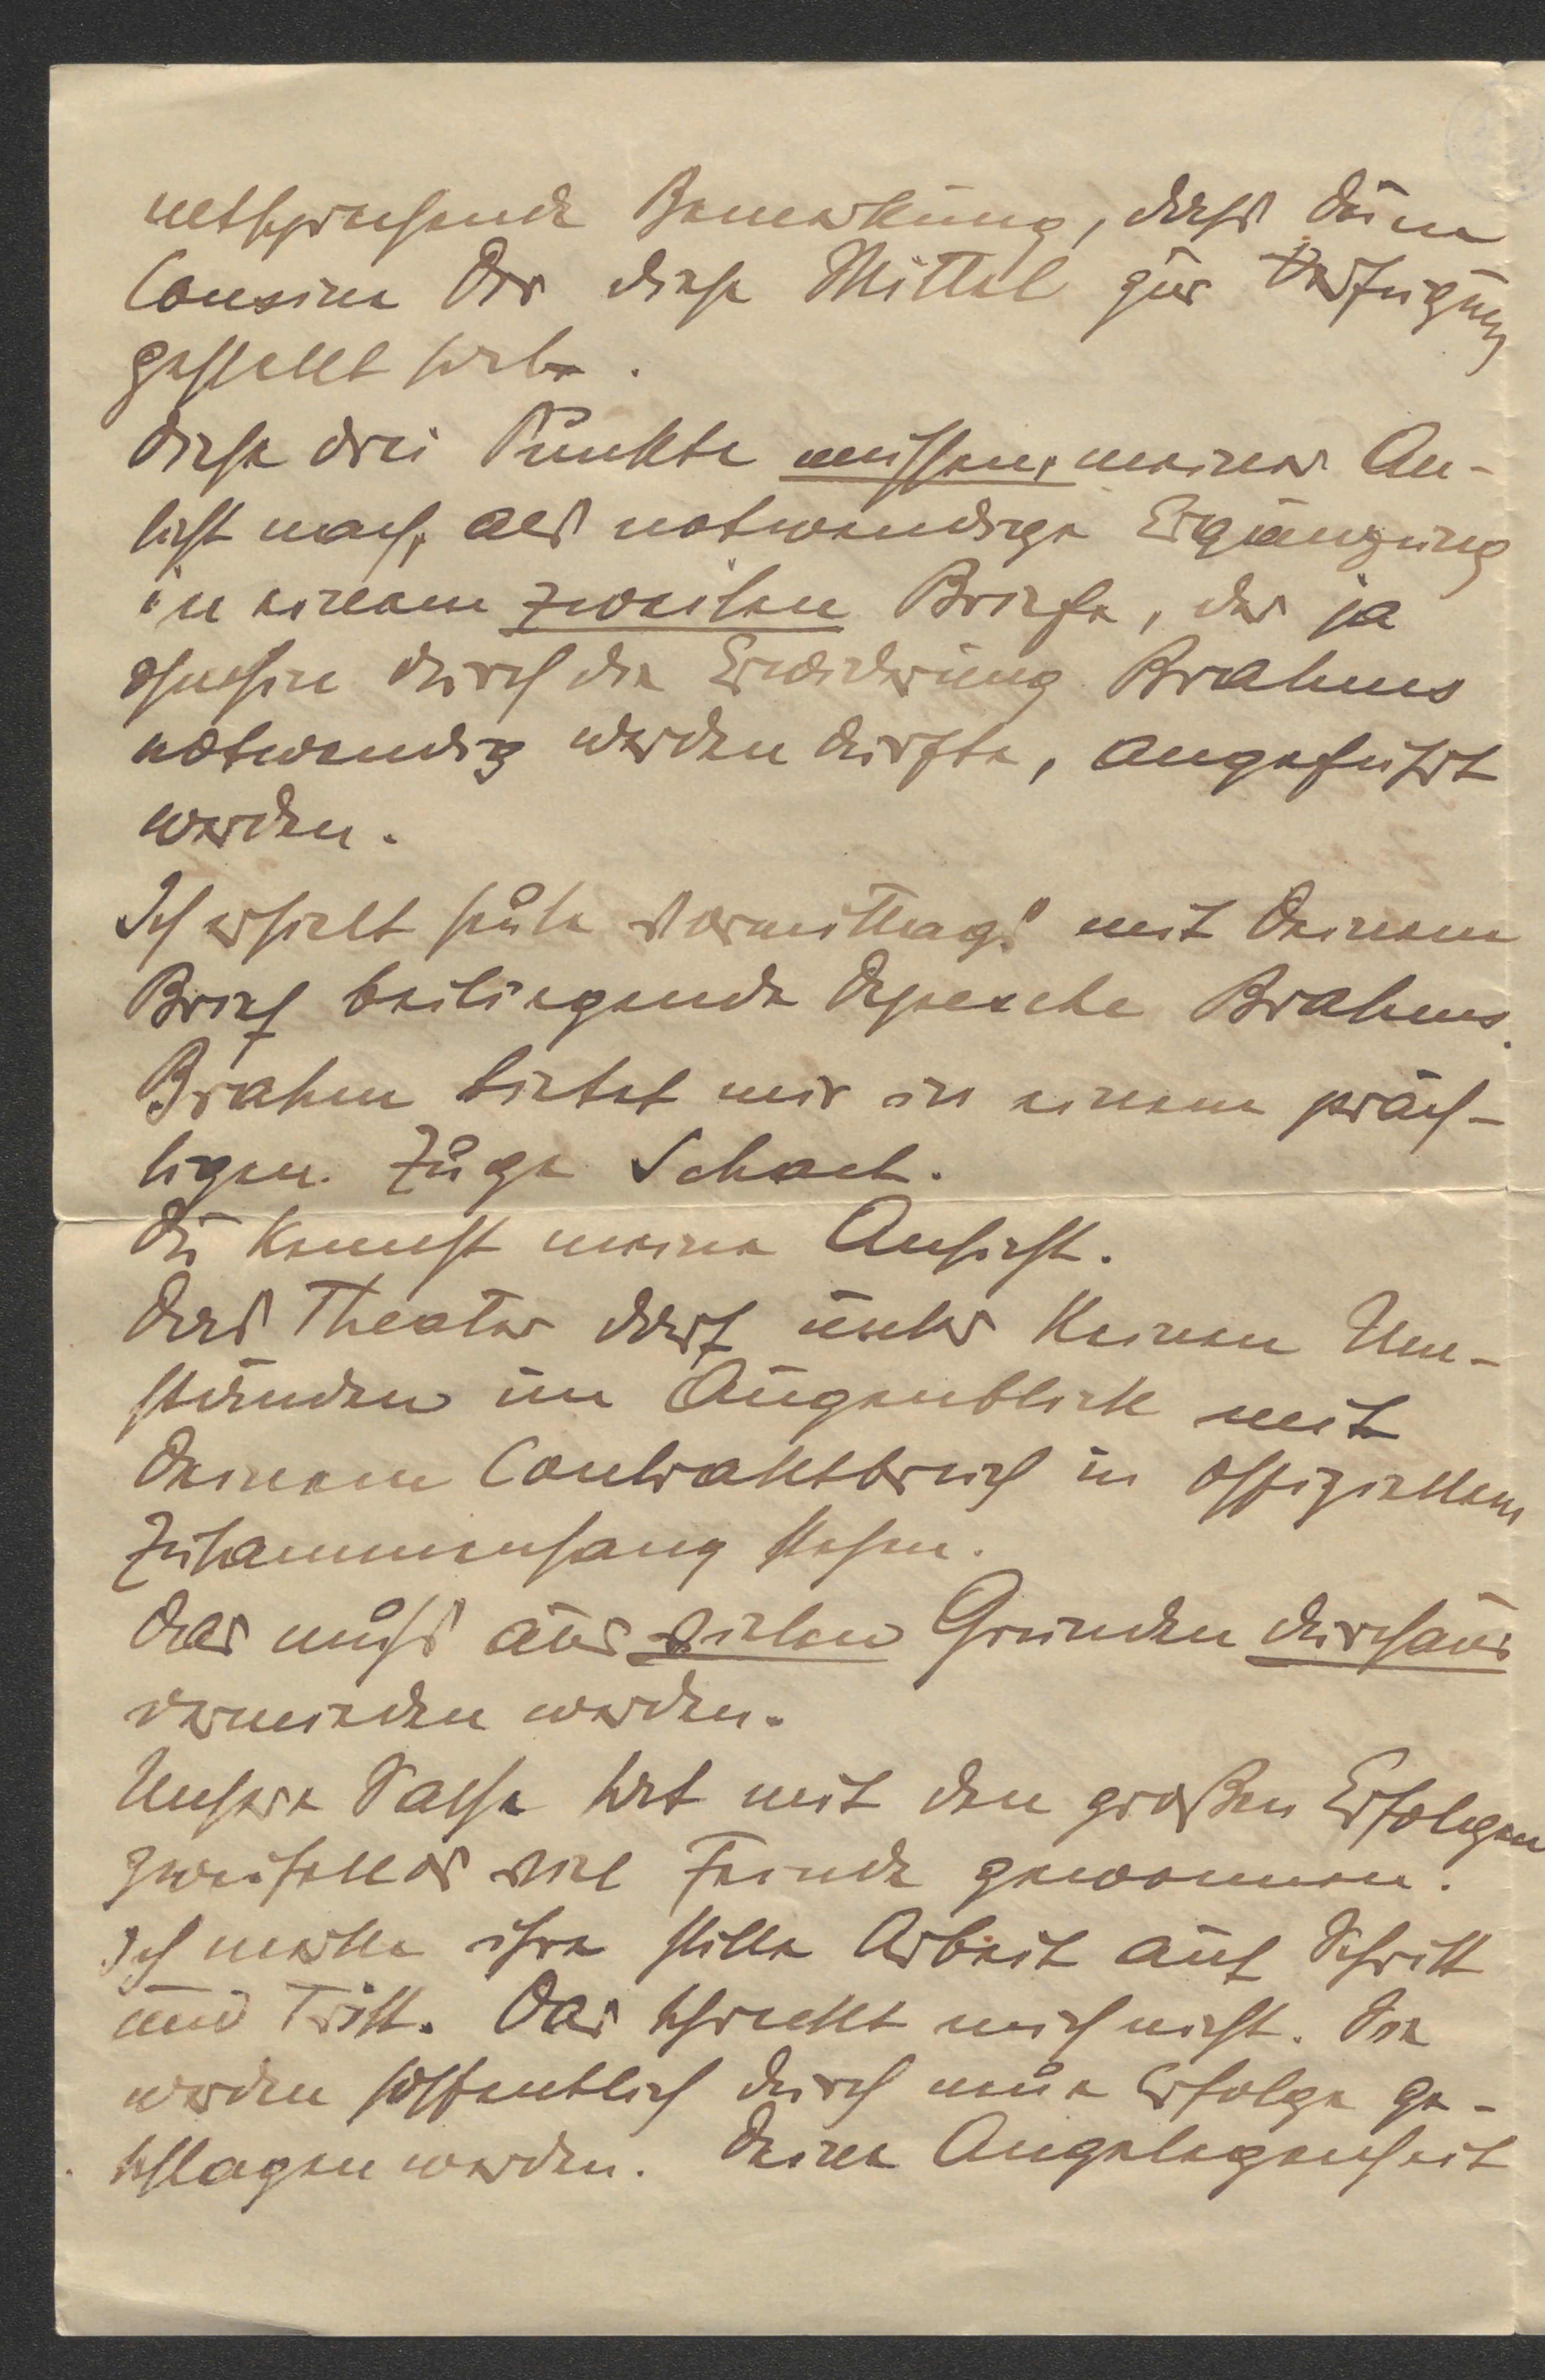 entsprechende Bemerkung, dass Deine
Cousine Dir diese Mittel zur Verfügung
gestellt habe.
Diese drei Punkte müssen, meiner An-
sicht nach, als notwendige Ergänzung
in einem zweiten Briefe, der ja
ohnehin durch die Erwiderung Brahms
notwendig werden dürfte, angeführt
werden.
Ich erhielt heute Vormittags mit Deinem
Brief beiliegende Depesche Brahms.
Brahm bietet mir in einem präch-
tigen Zuge Schach.
Du kennst meine Ansicht.
Das Theater darf unter keinen Um-
ständen im Augenblick mit
Deinem Contraktbruch in offiziellem
Zusammenhang stehen.
Das muss aus vielen Gründen durchaus
vermieden werden.
Unsere Sache hat mit den großen Erfolgen
zweifellos viel Feinde gewonnen.
Ich merke ihre stille Arbeit auf Schritt
und Tritt. Das schreckt mich nicht. Sie
werden hoffentlich durch neue Erfolge ge-
schlagen werden. Deine Angelegenheit